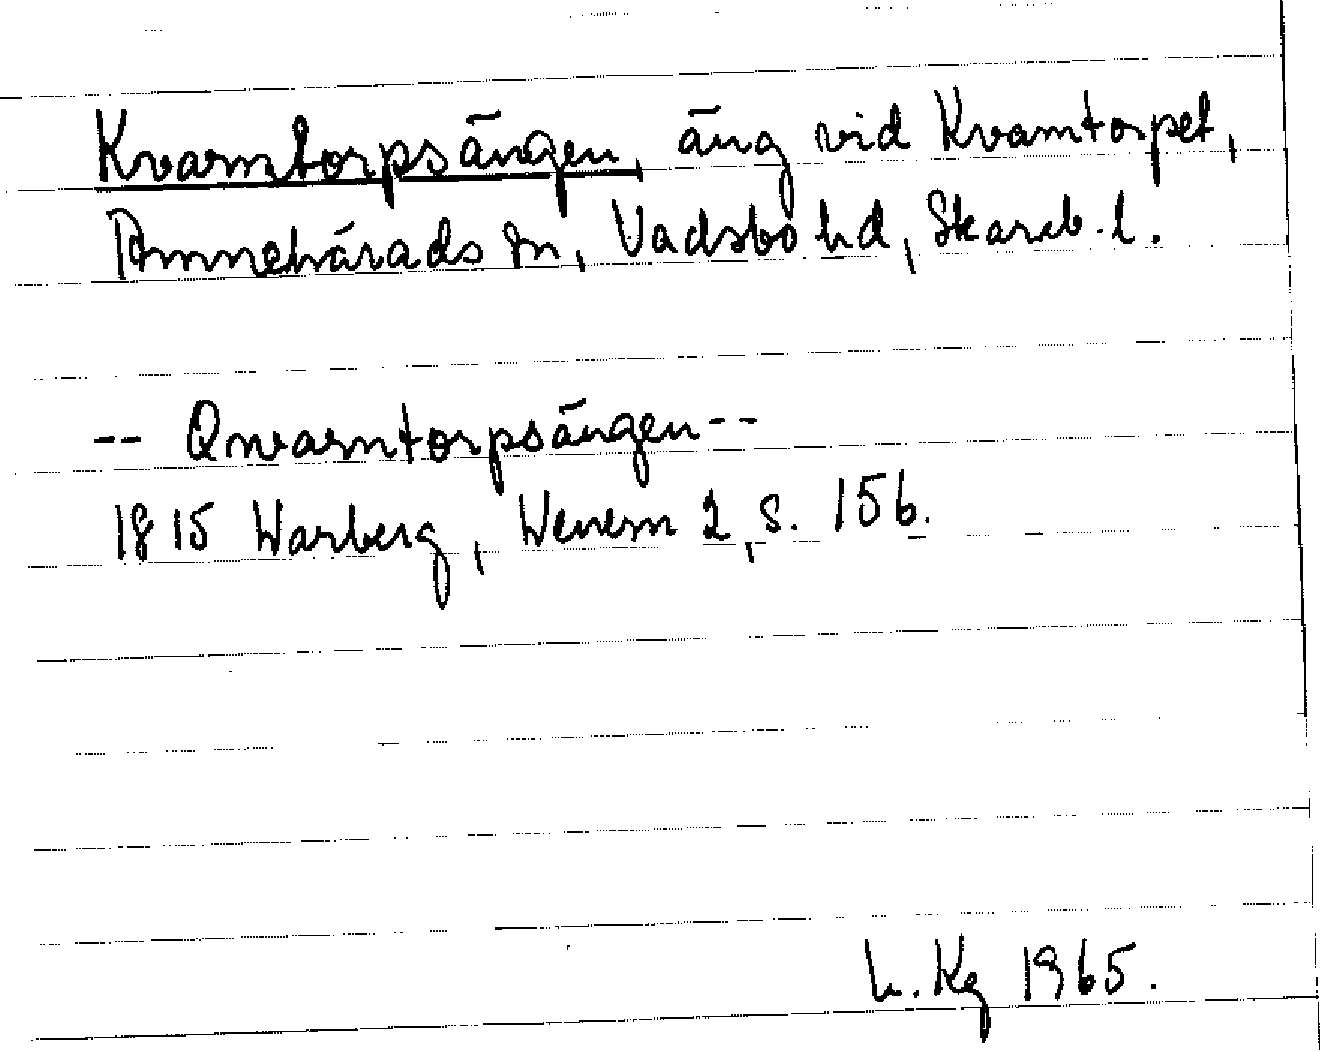 Kvarntorpsängen, äng vid Kvarntorpet,
Amnehärads sn, Vadsbo hd, Skarab. l.
-- Qvarntorpsängen --
1815 Warberg, Wenern 2, s. 156.
L. Kg 1965.